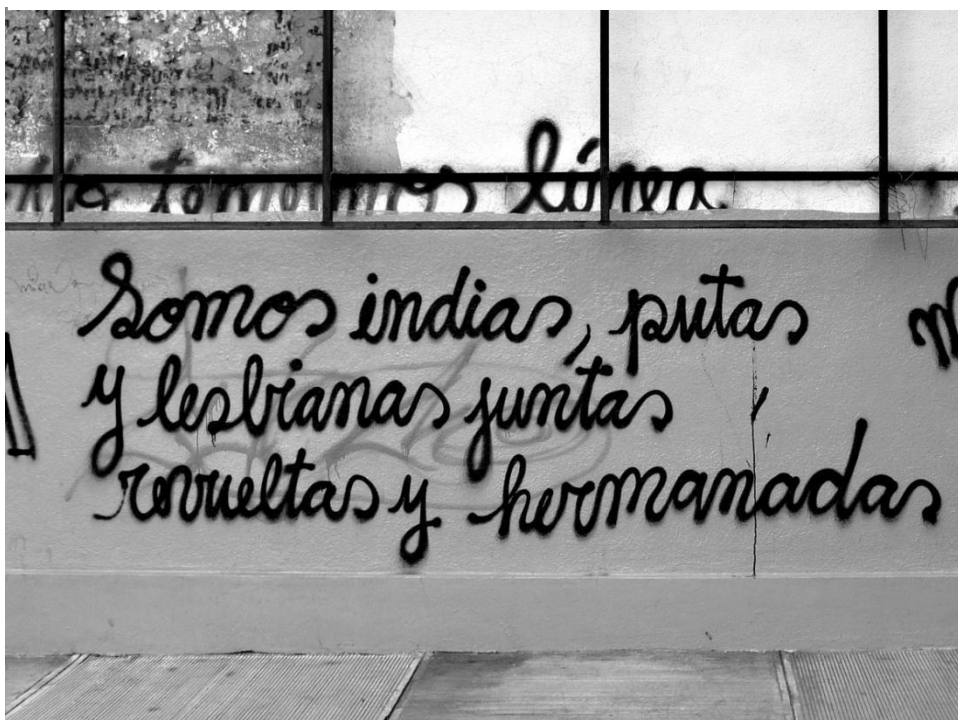 No tememos línea
Somos indias, putas
y lesbianas juntas
revueltas y hermanadas